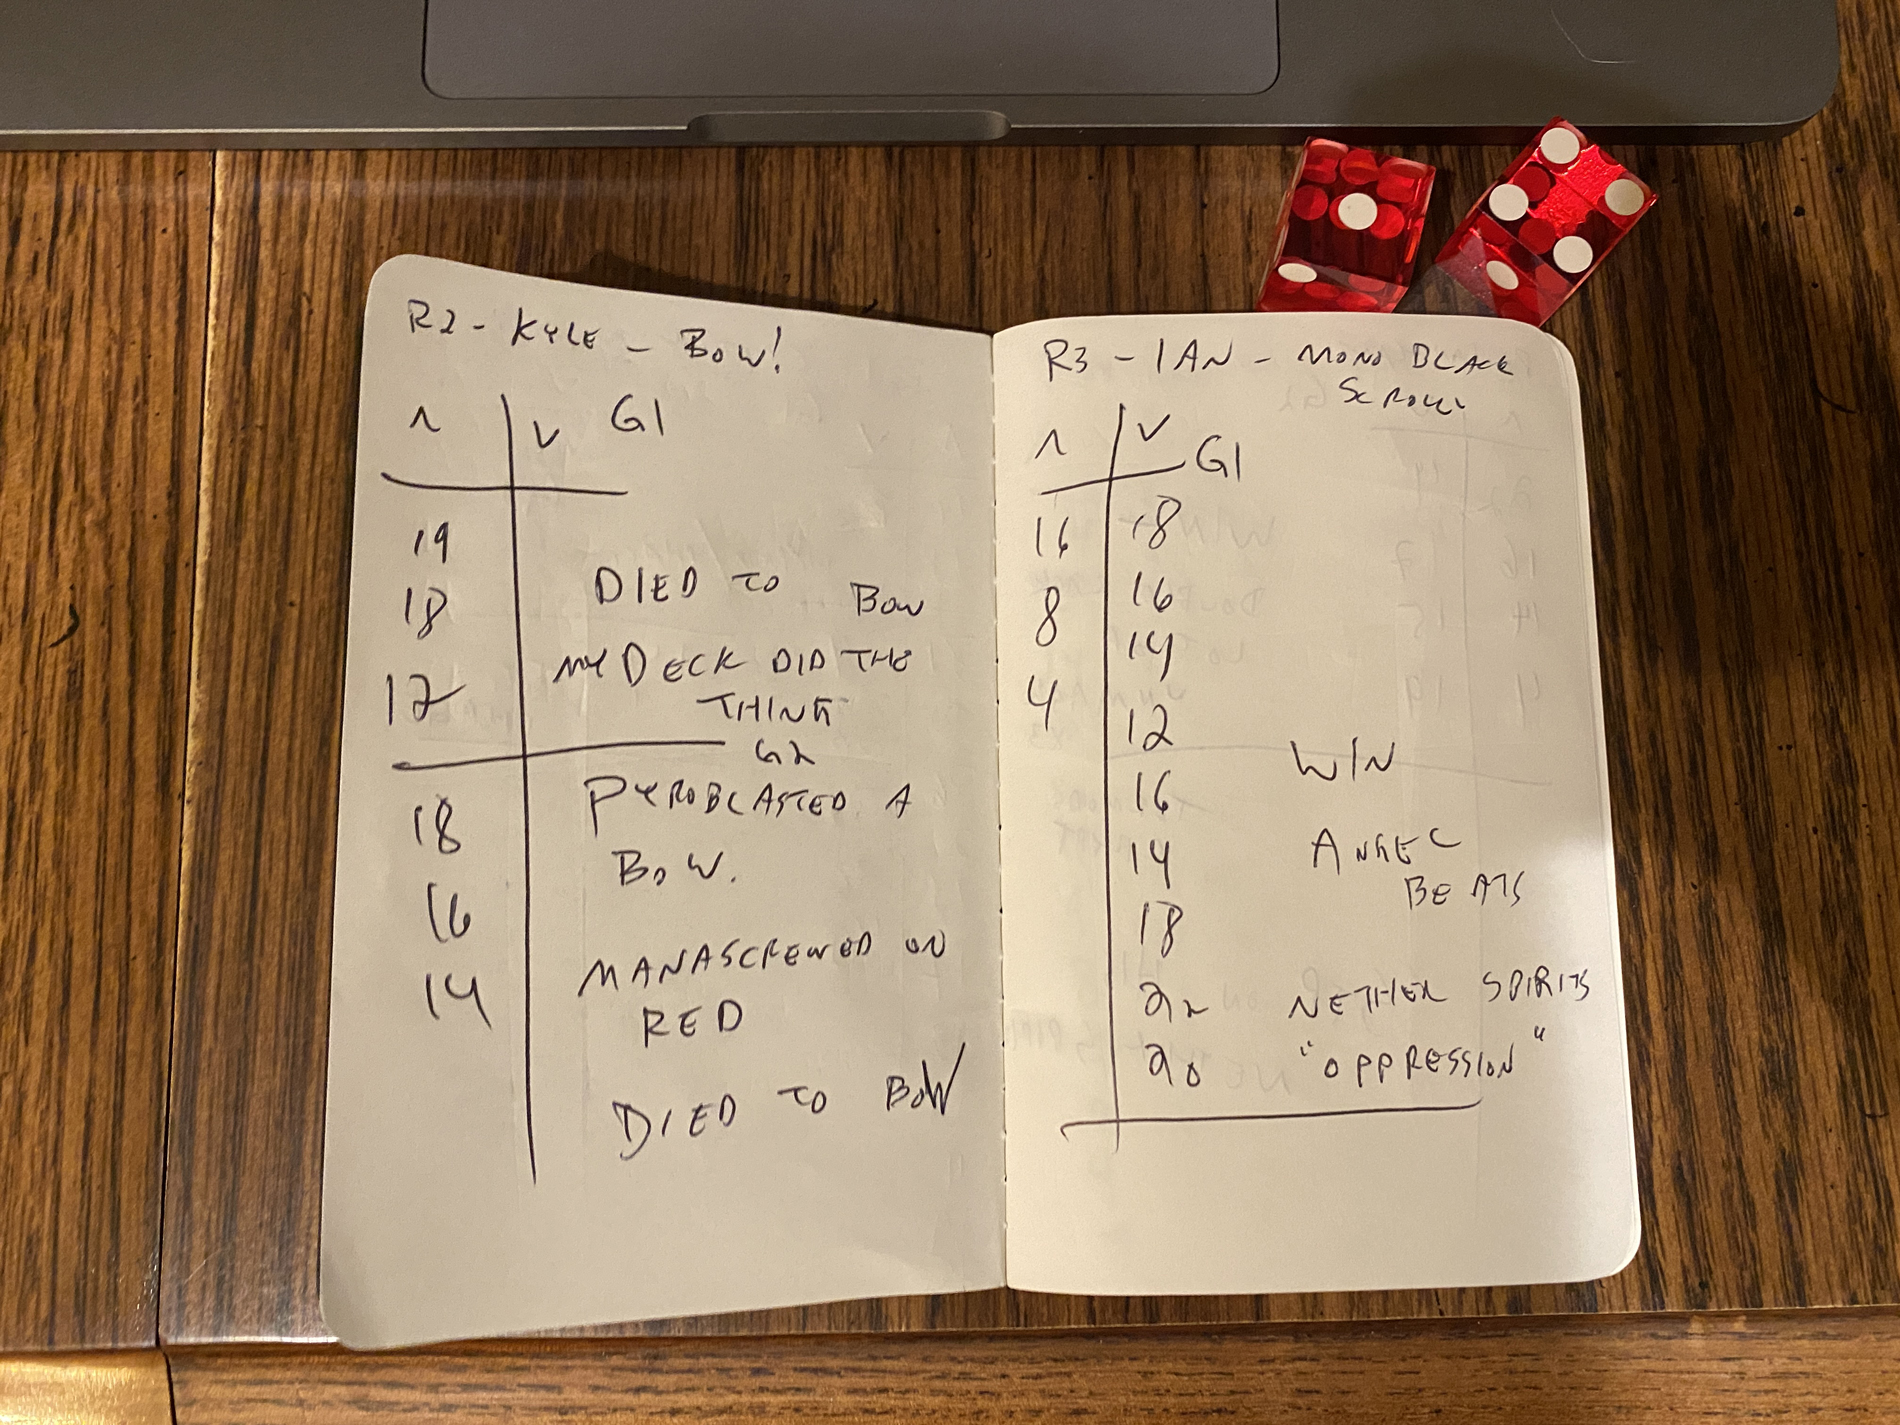 R2 - KYLE - BOW!
^ V G1
19
18 DIED TO BOW
MY DECK DID THE
12 THING
G2
18 PYROBLASTED A
BOW.
16
MANASCREWED ON
14 RED
DIED TO BOW
R3 - IAN - MONO BLACK
^ V G1
16 18
8 16
14
4 12
WIN
16
14 ANGEL
BEATS
18
22 NETHER SPIRITS
20 "OPPRESSION"